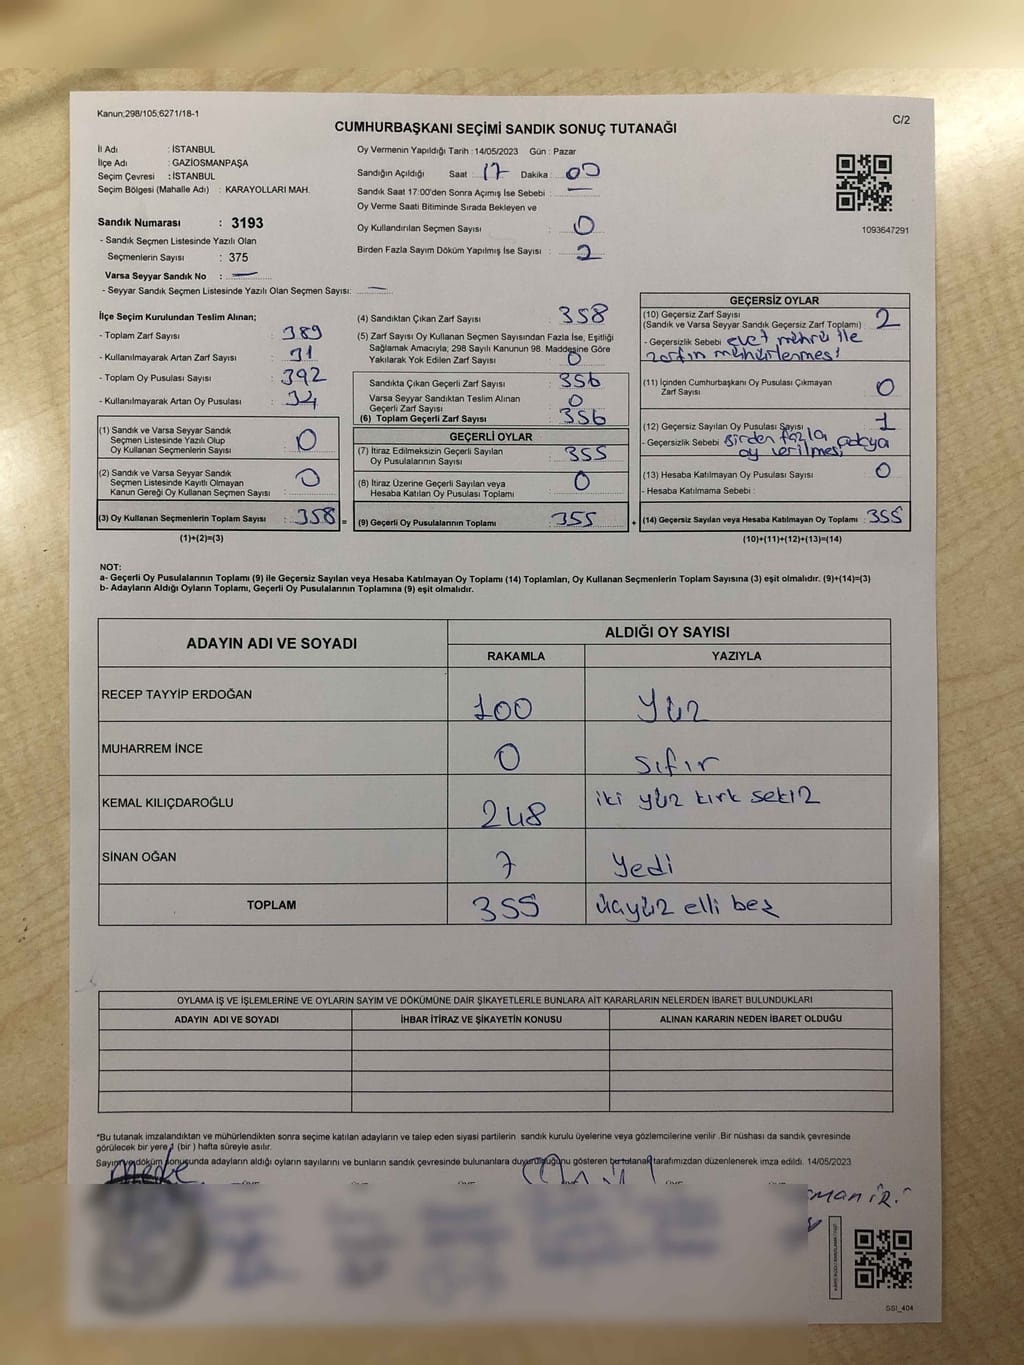 Kanun;298/105;6271/18-1
C/2
CUMHURBAŞKANI SEÇİMİ SANDIK SONUÇ TUTANAĞI
İl Adı : İSTANBUL
İlçe Adı : GAZİOSMANPAŞA
Seçim Çevresi : İSTANBUL
Seçim Bölgesi (Mahalle Adı) : KARAYOLLARI MAH.
Sandık Numarası : 3193
- Sandık Seçmen Listesinde Yazılı Olan
Seçmenlerin Sayısı : 375
Varsa Seyyar Sandık No : —
- Seyyar Sandık Seçmen Listesinde Yazılı Olan Seçmen Sayısı: —
Oy Vermenin Yapıldığı Tarih : 14/05/2023 Gün : Pazar
Sandığın Açıldığı Saat : 17 Dakika : 00
Sandık Saat 17:00'den Sonra Açımış İse Sebebi : —
Oy Verme Saati Bitiminde Sırada Bekleyen ve
Oy Kullandırılan Seçmen Sayısı : 0
Birden Fazla Sayım Döküm Yapılmış İse Sayısı : 2
1093647291
İlçe Seçim Kurulundan Teslim Alınan;
- Toplam Zarf Sayısı : 389
- Kullanılmayarak Artan Zarf Sayısı : 31
- Toplam Oy Pusulası Sayısı : 392
- Kullanılmayarak Artan Oy Pusulası : 34
(1) Sandık ve Varsa Seyyar Sandık
Seçmen Listesinde Yazılı Olup
Oy Kullanan Seçmenlerin Sayısı : 0
(2) Sandık ve Varsa Seyyar Sandık
Seçmen Listesinde Kayıtlı Olmayan
Kanun Gereği Oy Kullanan Seçmen Sayısı : 0
(3) Oy Kullanan Seçmenlerin Toplam Sayısı : 358 =
(1)+(2)=(3)
(4) Sandıktan Çıkan Zarf Sayısı : 358
(5) Zarf Sayısı Oy Kullanan Seçmen Sayısından Fazla İse, Eşitliği
Sağlamak Amacıyla; 298 Sayılı Kanunun 98. Maddesine Göre
Yakılarak Yok Edilen Zarf Sayısı : 0
Sandıkta Çıkan Geçerli Zarf Sayısı : 356
Varsa Seyyar Sandıktan Teslim Alınan
Geçerli Zarf Sayısı : 0
(6) Toplam Geçerli Zarf Sayısı : 356
GEÇERLİ OYLAR
(7) İtiraz Edilmeksizin Geçerli Sayılan
Oy Pusulalarının Sayısı : 355
(8) İtiraz Üzerine Geçerli Sayılan veya
Hesaba Katılan Oy Pusulası Toplamı : 0
(9) Geçerli Oy Pusulalarının Toplamı : 355 +
GEÇERSİZ OYLAR
(10) Geçersiz Zarf Sayısı
(Sandık ve Varsa Seyyar Sandık Geçersiz Zarf Toplamı) : 2
- Geçersizlik Sebebi : evet mührü ile
zarfın mühürlenmesi
(11) İçinden Cumhurbaşkanı Oy Pusulası Çıkmayan
Zarf Sayısı : 0
(12) Geçersiz Sayılan Oy Pusulası Sayısı : 1
- Geçersizlik Sebebi : Birden fazla adaya
oy verilmesi
(13) Hesaba Katılmayan Oy Pusulası Sayısı : 0
- Hesaba Katılmama Sebebi :
(14) Geçersiz Sayılan veya Hesaba Katılmayan Oy Toplamı : 355
(10)+(11)+(12)+(13)=(14)
NOT:
a- Geçerli Oy Pusulalarının Toplamı (9) ile Geçersiz Sayılan veya Hesaba Katılmayan Oy Toplamı (14) Toplamları, Oy Kullanan Seçmenlerin Toplam Sayısına (3) eşit olmalıdır. (9)+(14)=(3)
b- Adayların Aldığı Oyların Toplamı, Geçerli Oy Pusulalarının Toplamına (9) eşit olmalıdır.
ADAYIN ADI VE SOYADI
ALDIĞI OY SAYISI
RAKAMLA YAZIYLA
RECEP TAYYİP ERDOĞAN 100 Yüz
MUHARREM İNCE 0 Sıfır
KEMAL KILIÇDAROĞLU 248 iki yüz kırk sekiz
SİNAN OĞAN 7 Yedi
TOPLAM 355 üçyüz elli beş
OYLAMA İŞ VE İŞLEMLERİNE VE OYLARIN SAYIM VE DÖKÜMÜNE DAİR ŞİKAYETLERLE BUNLARA AİT KARARLARIN NELERDEN İBARET BULUNDUKLARI
ADAYIN ADI VE SOYADI İHBAR İTİRAZ VE ŞİKAYETİN KONUSU ALINAN KARARIN NEDEN İBARET OLDUĞU
*Bu tutanak imzalandıktan ve mühürlendikten sonra seçime katılan adayların ve talep eden siyasi partilerin sandık kurulu üyelerine veya gözlemcilerine verilir .Bir nüshası da sandık çevresinde
görülecek bir yere 1 (bir ) hafta süreyle asılır.
Sayım ve döküm sonucunda adayların aldığı oyların sayılarını ve bunların sandık çevresinde bulunanlara duyurulduğunu gösteren bu tutanak tarafımızdan düzenlenerek imza edildi. 14/05/2023
SSI_404